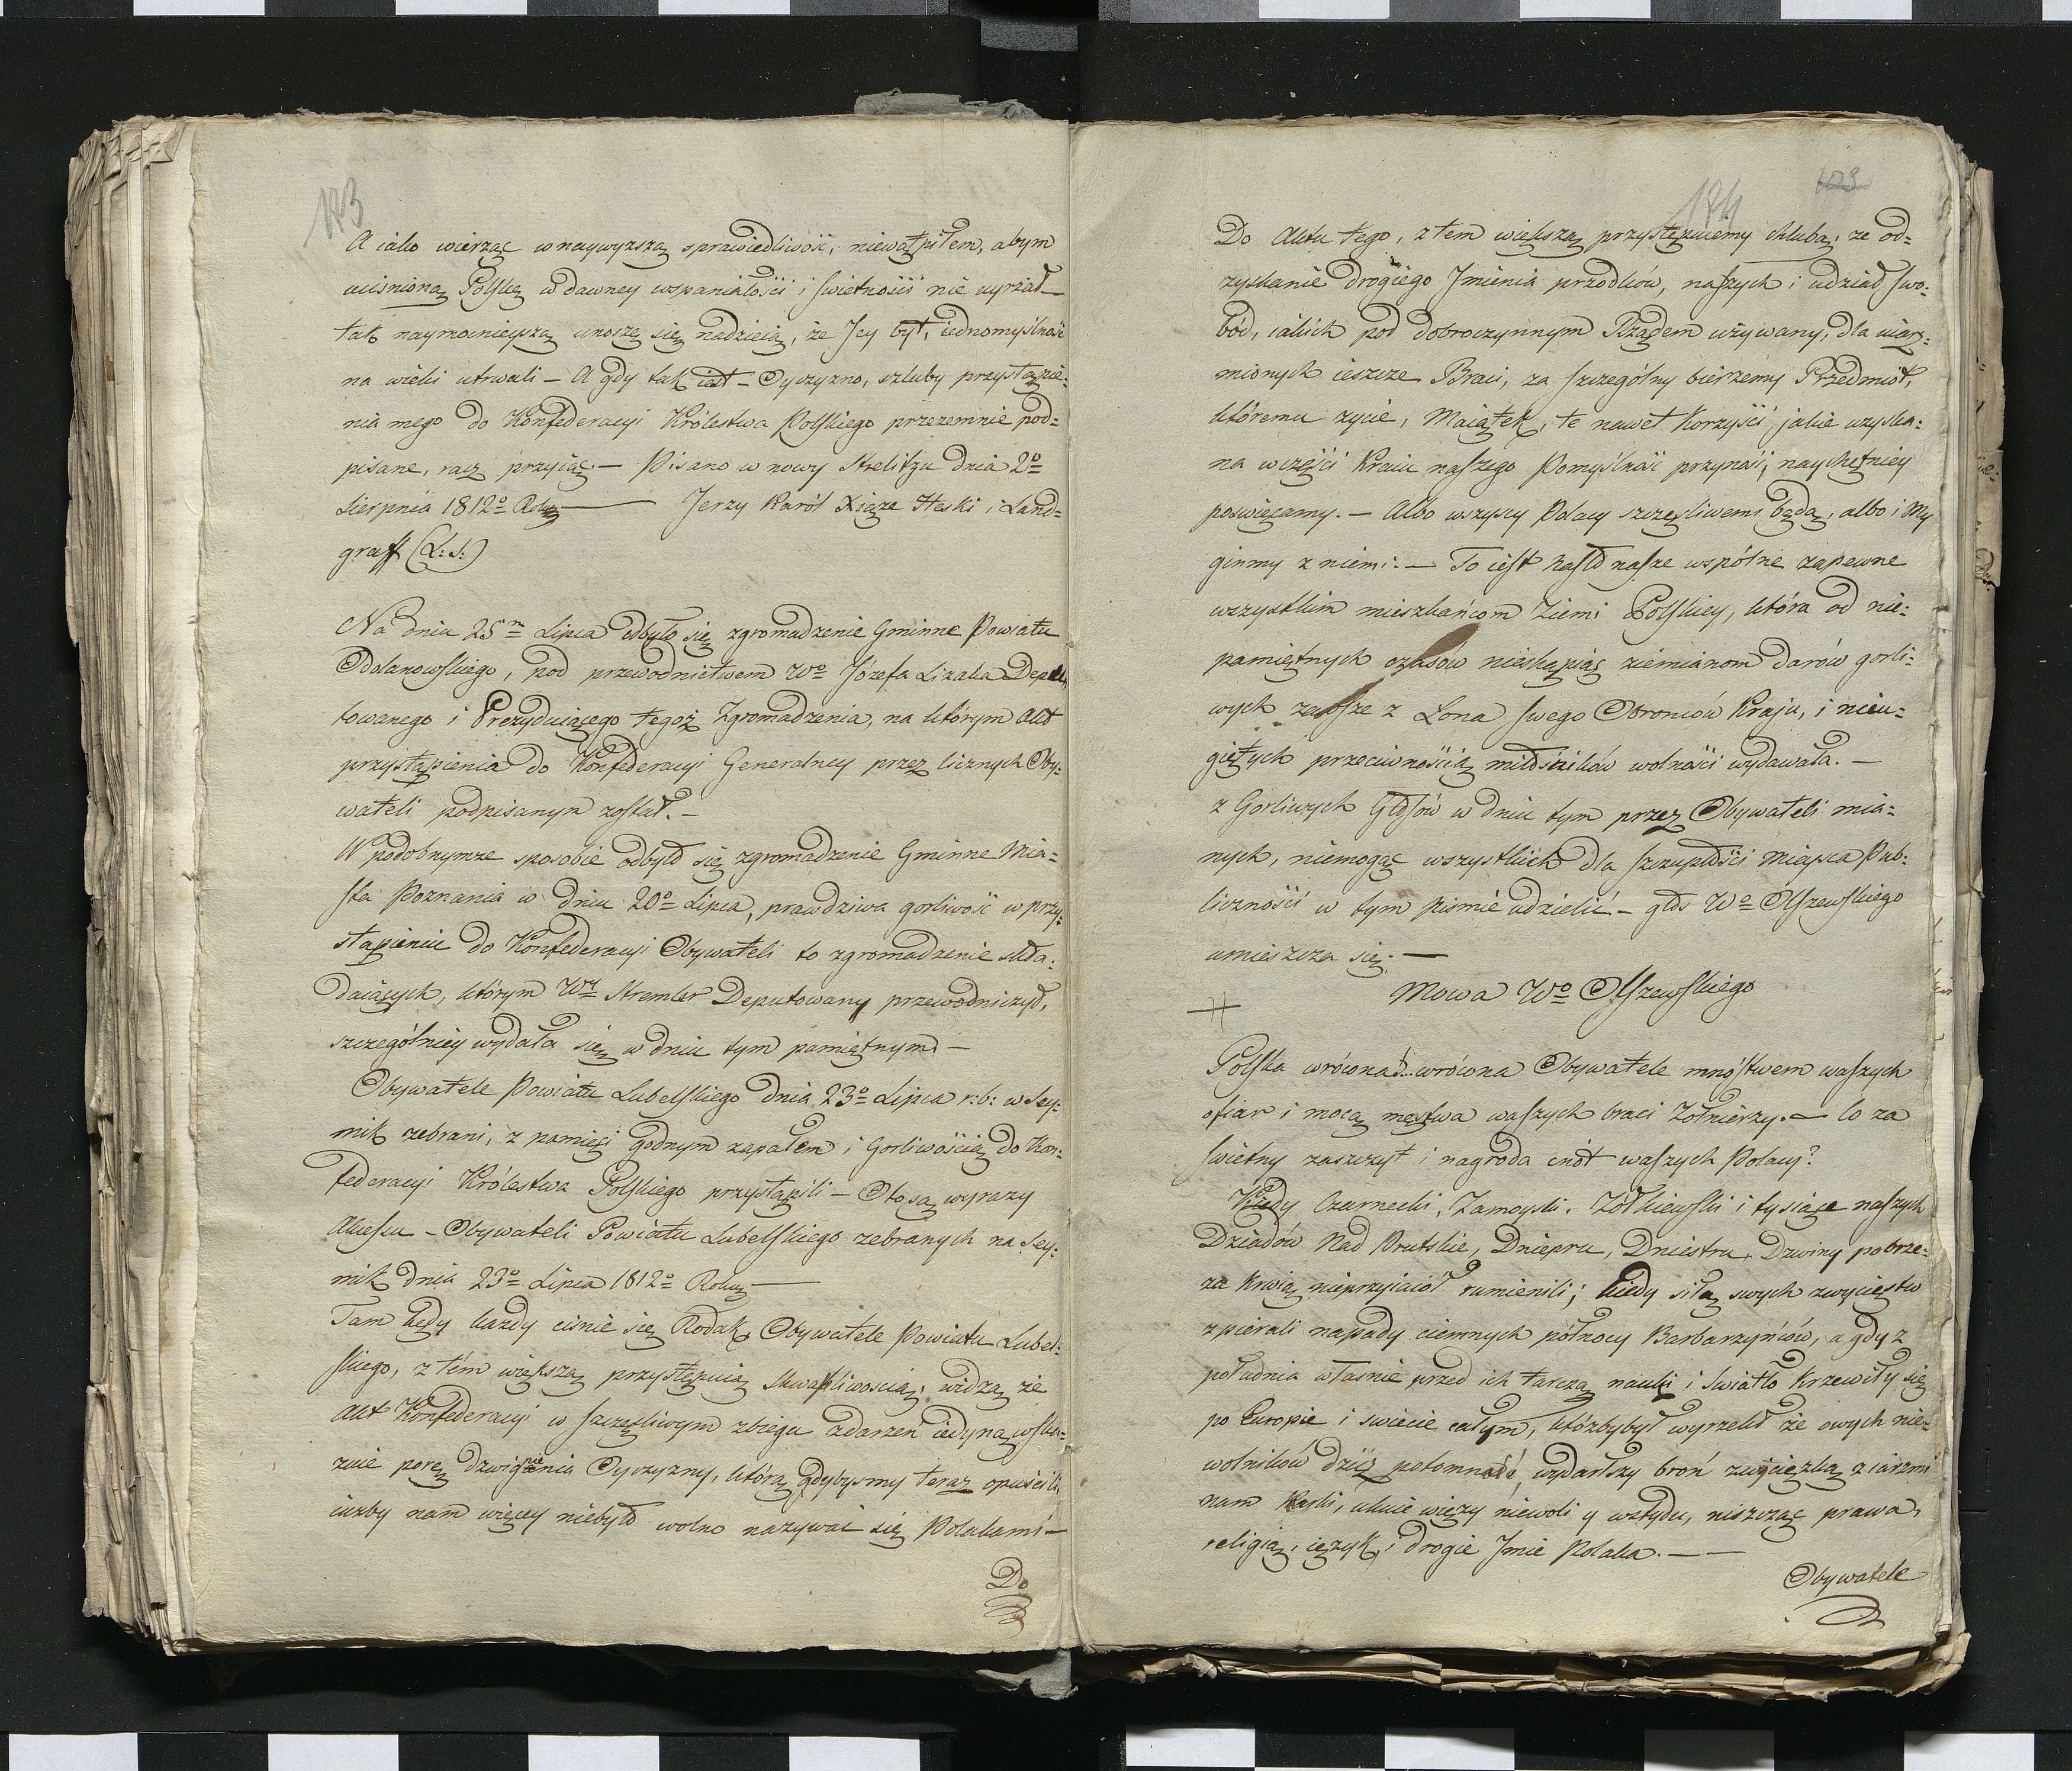 A iako wierząc w naywyższą sprawiedliwość, niewątpiłem, abym
uciśnioną Polskę w dawney wspaniałości i świetności nie uyrzał
tak naymocnieyszą unoszę się nadzieią, że Jey byt, iednomyślność
na wieki utrwali – A gdy tak iest – Oyczyzno, szluby przystąpie=
nia mego do Konfederacyi Królestwa Polskiego przezemnie pod=
pisane, racz przyiąć. – Pisano w nowy Strelitzu dnia 2º
Sierpnia 1812º Roku — Jerzy Karól Xiąże Heski i Land=
graff (L: S:)
Na dniu 25m Lipca odbyło się zgromadzenie Gminne Powiatu
Odolanowskiego, pod przewodnictwem Wº Józefa Lizaka Depu
towanego i Prezyduiącego tegoż Zgromadzenia, na którym Akt
przystąpienia do Konfederacyi Generalney przez licznych Oby=
wateli podpisanym został. –
W podobnymże sposobie odbyło się zgromadzenie Gminne Mia=
sta Poznania w dniu 20º Lipca, prawdziwa gorliwość w przy=
stąpieniu do Konfederacyi Obywateli to zgromadzenie skła=
daiących, którym Wy Stremler Deputowany przewodniczył,
szczególniey wydała się w dniu tym pamiętnym –
Obywatele Powiatu Lubelskiego dnia 23º Lipca r: b: w Sey=
mik zebrani, z pamięci godnym zapałem i Gorliwością do Kon=
federacyi Królestwa Polskiego przystąpili – Oto są wyrazy
Akcesu – Obywateli Powiatu Lubelskiego zebranych na Sey=
mik dnia 23º Lipca 1812º Roku —
Tam kędy każdy ciśnie się Rodak, Obywatele Powiatu Lubel=
skiego, z tém większą przystępuią skwapliwością, widzą że
Akt Konfederacyi w szczęśliwym zbiegu zdarzeń iedyną wska=
zuie porę dzwignienia Oyczyzny, którą gdybyśmy teraz opuścili,
iużby nam więcey niebyło wolno nazywać się Polakami –
Do
Do Aktu tego, z tem większą przystępuiemy chlubą, że od=
zyskanie drogiego Jmienia przodków, naszych i udział swo=
bód, iakich pod dobroczynnym Rządem używany, dla uiarz=
mionych ieszcze Braci, za szczególny bierzemy Przedmiot,
któremu życie, Maiątek, te nawet Korzyści jakie uzyska=
na w części Kraiu naszego Pomyślność przynosi, naychętniey
poświęcamy. – Albo wszyscy Polacy szczęśliwemi będą, albo i My
ginmy z niemi. – To iest hasło nasze wspólne zapewne
wszystkim mieszkańcom Ziemi Polskiey, która od nie=
pamiętnych czasów nieskąpiąc ziemianom darów gorli=
wych zawsze z Łona swego Obrońców Kraju, i nieu=
giętych przeciwnością miłośników wolności wydawała. –
z Gorliwych Głosów w dniu tym przez Obywateli mia=
nych, niemogąc wszystkich dla szczupłości mieysca Pub=
liczności w tym pismie udzielić – głos Wº Olszewskiego
umieszcza się. –
Mowa Wº Olszewskiego
Polska wrócona!.. wrócona Obywatele mnóstwem waszych
ofiar i mocą męstwa waszych braci Żołnierzy. – Co za
świetny zaszczyt i nagroda cnót waszych Polacy?
Kiedy Czarnecki, Zamoyski, Żółkiewski i tysiące naszych
Dziadów Nad Prutskie, Dniepru, Dniestru, Dzwiny pobrze=
ża krwią nieprzyiaciół rumienili; kiedy siłą swych zwycięstw
spierali napady ciemnych północy Barbarzyńców, a gdy z
południa własnie przed ich tarczą nauki i światło Krzewiły się
po Europie i świecie całym, któżby był wyrzekł że owych nie=
wolników dziś potomność, wydarłszy broń zwycięzką z iarzmi
nam Karki, ukuie więzy niewoli y wstydu, niszcząc prawa,
religią, ięzyk, i drogie Jmie Polaka. –
Obywatele